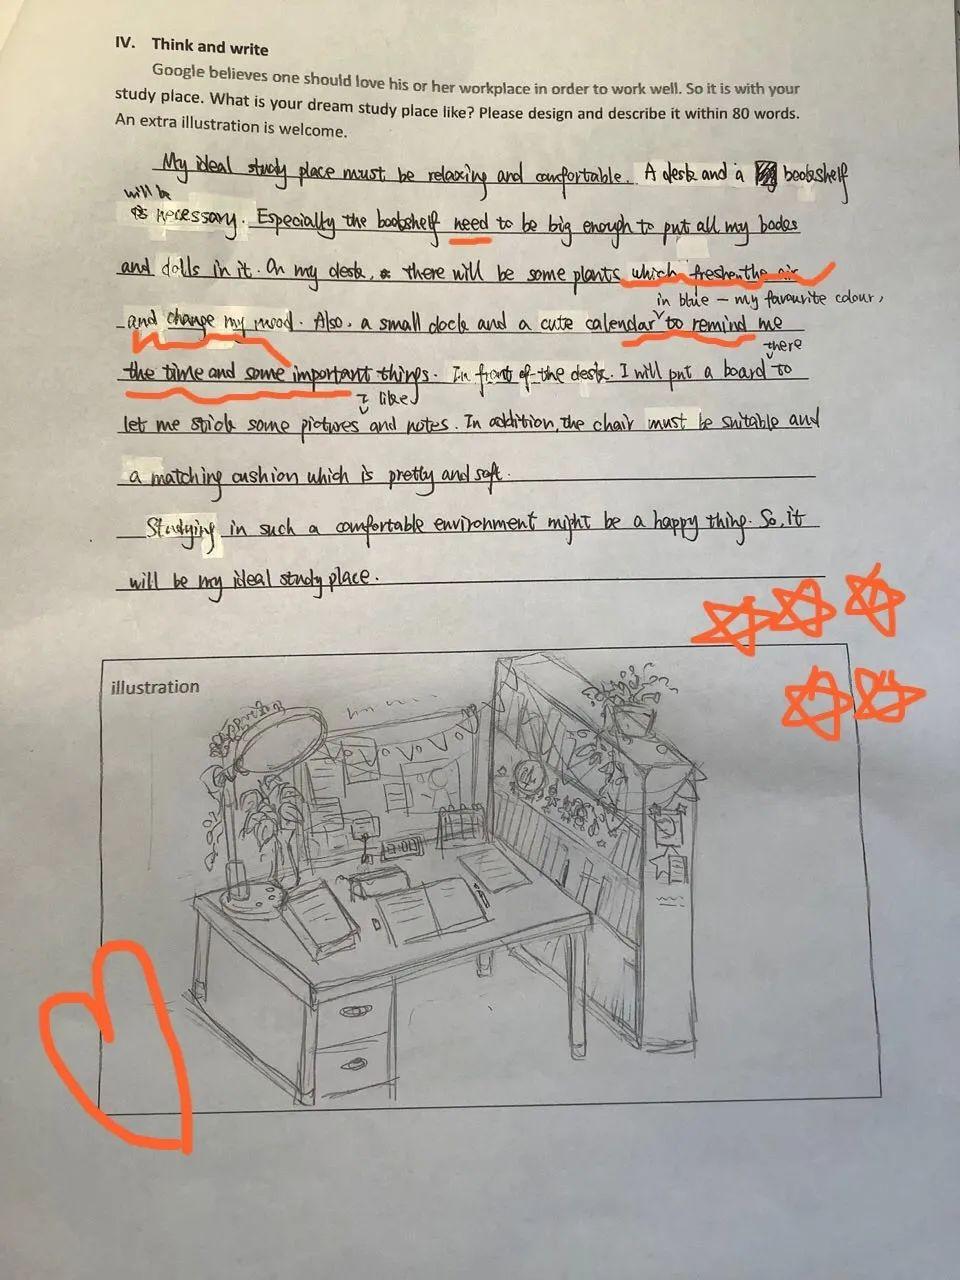 IV. Think and write
Google believes one should love his or her workplace in order to work well. So it is with your
study place. What is your dream study place like? Please design and describe it within 80 words.
An extra illustration is welcome.
My ideal study place must be relaxing and comfortable. A desk and a bookshelf
will be
necessary. Especially the bookshelf need to be big enough to put all my books
and dolls in it. On my desk, there will be some plants which freshen the air
in blue — my favourite colour,
and change my mood. Also, a small clock and a cute calendar to remind me
there
the time and some important things. In front of the desk. I will put a board to
I like
let me stick some pictures and notes. In addition, the chair must be suitable and
a matching cushion which is pretty and soft.
Studying in such a comfortable environment might be a happy thing. So, it
will be my ideal study place.
illustration